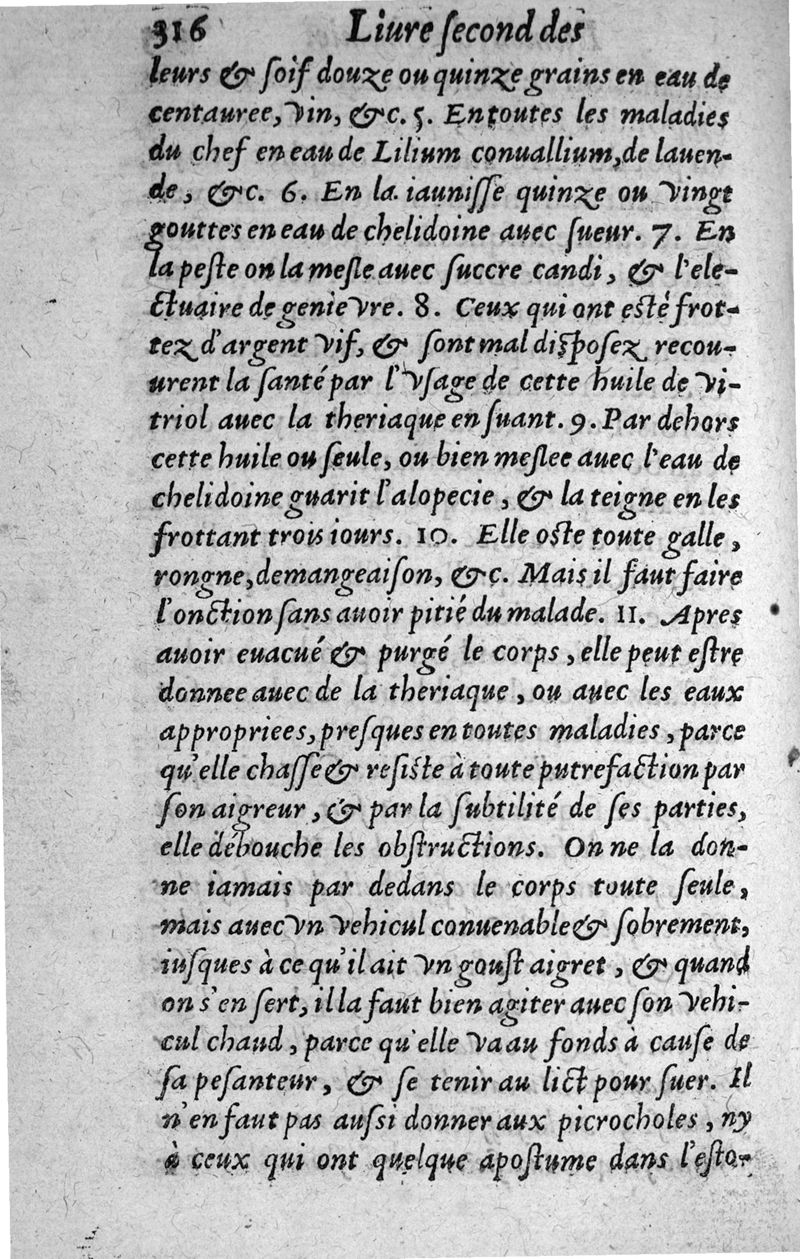 316 Liure ſecond des
leurs & ſoif douze ou quinze grains en eau de
centauree, vin, &c. 5. En toutes les maladies
du chef en eau de Lilium conuallium, de lauen-
de, &c. 6. En la iauniſſe quinze ou vingt
gouttes en eau de chelidoine auec ſueur. 7. En
la peſte on la meſle auec ſuccre candi, & l'ele-
ctuaire de genievre. 8. Ceux qui ont eſté frot-
tez d'argent vif, & ſont mal diſpoſez, recou-
urent la ſanté par l'vſage de cette huile de vi-
triol auec la theriaque en ſuant. 9. Par dehors
cette huile ou ſeule, ou bien meſlee auec l'eau de
chelidoine guarit l'alopecie, & la teigne en les
frottant trois iours. 10. Elle oſte toute galle,
rongne, demangeaiſon, &c. Mais il faut faire
l'onction ſans auoir pitié du malade. 11. Apres
auoir euacué & purgé le corps, elle peut eſtre
donnee auec de la theriaque, ou auec les eaux
appropriees, preſques en toutes maladies, parce
qu'elle chaſſe & reſiſte à toute putrefaction par
ſon aigreur, & par la ſubtilité de ſes parties,
elle débouche les obſtructions. On ne la don-
ne iamais par dedans le corps toute ſeule,
mais auec vn vehicul conuenable & ſobrement,
iuſques à ce qu'il ait vn gouſt aigret, & quand
on s'en ſert, il la faut bien agiter auec ſon vehi-
cul chaud, parce qu'elle va au fonds à cauſe de
ſa peſanteur, & ſe tenir au lict pour ſuer. Il
n'en faut pas auſsi donner aux picrocholes, ny
à ceux qui ont quelque apoſtume dans l'eſto-